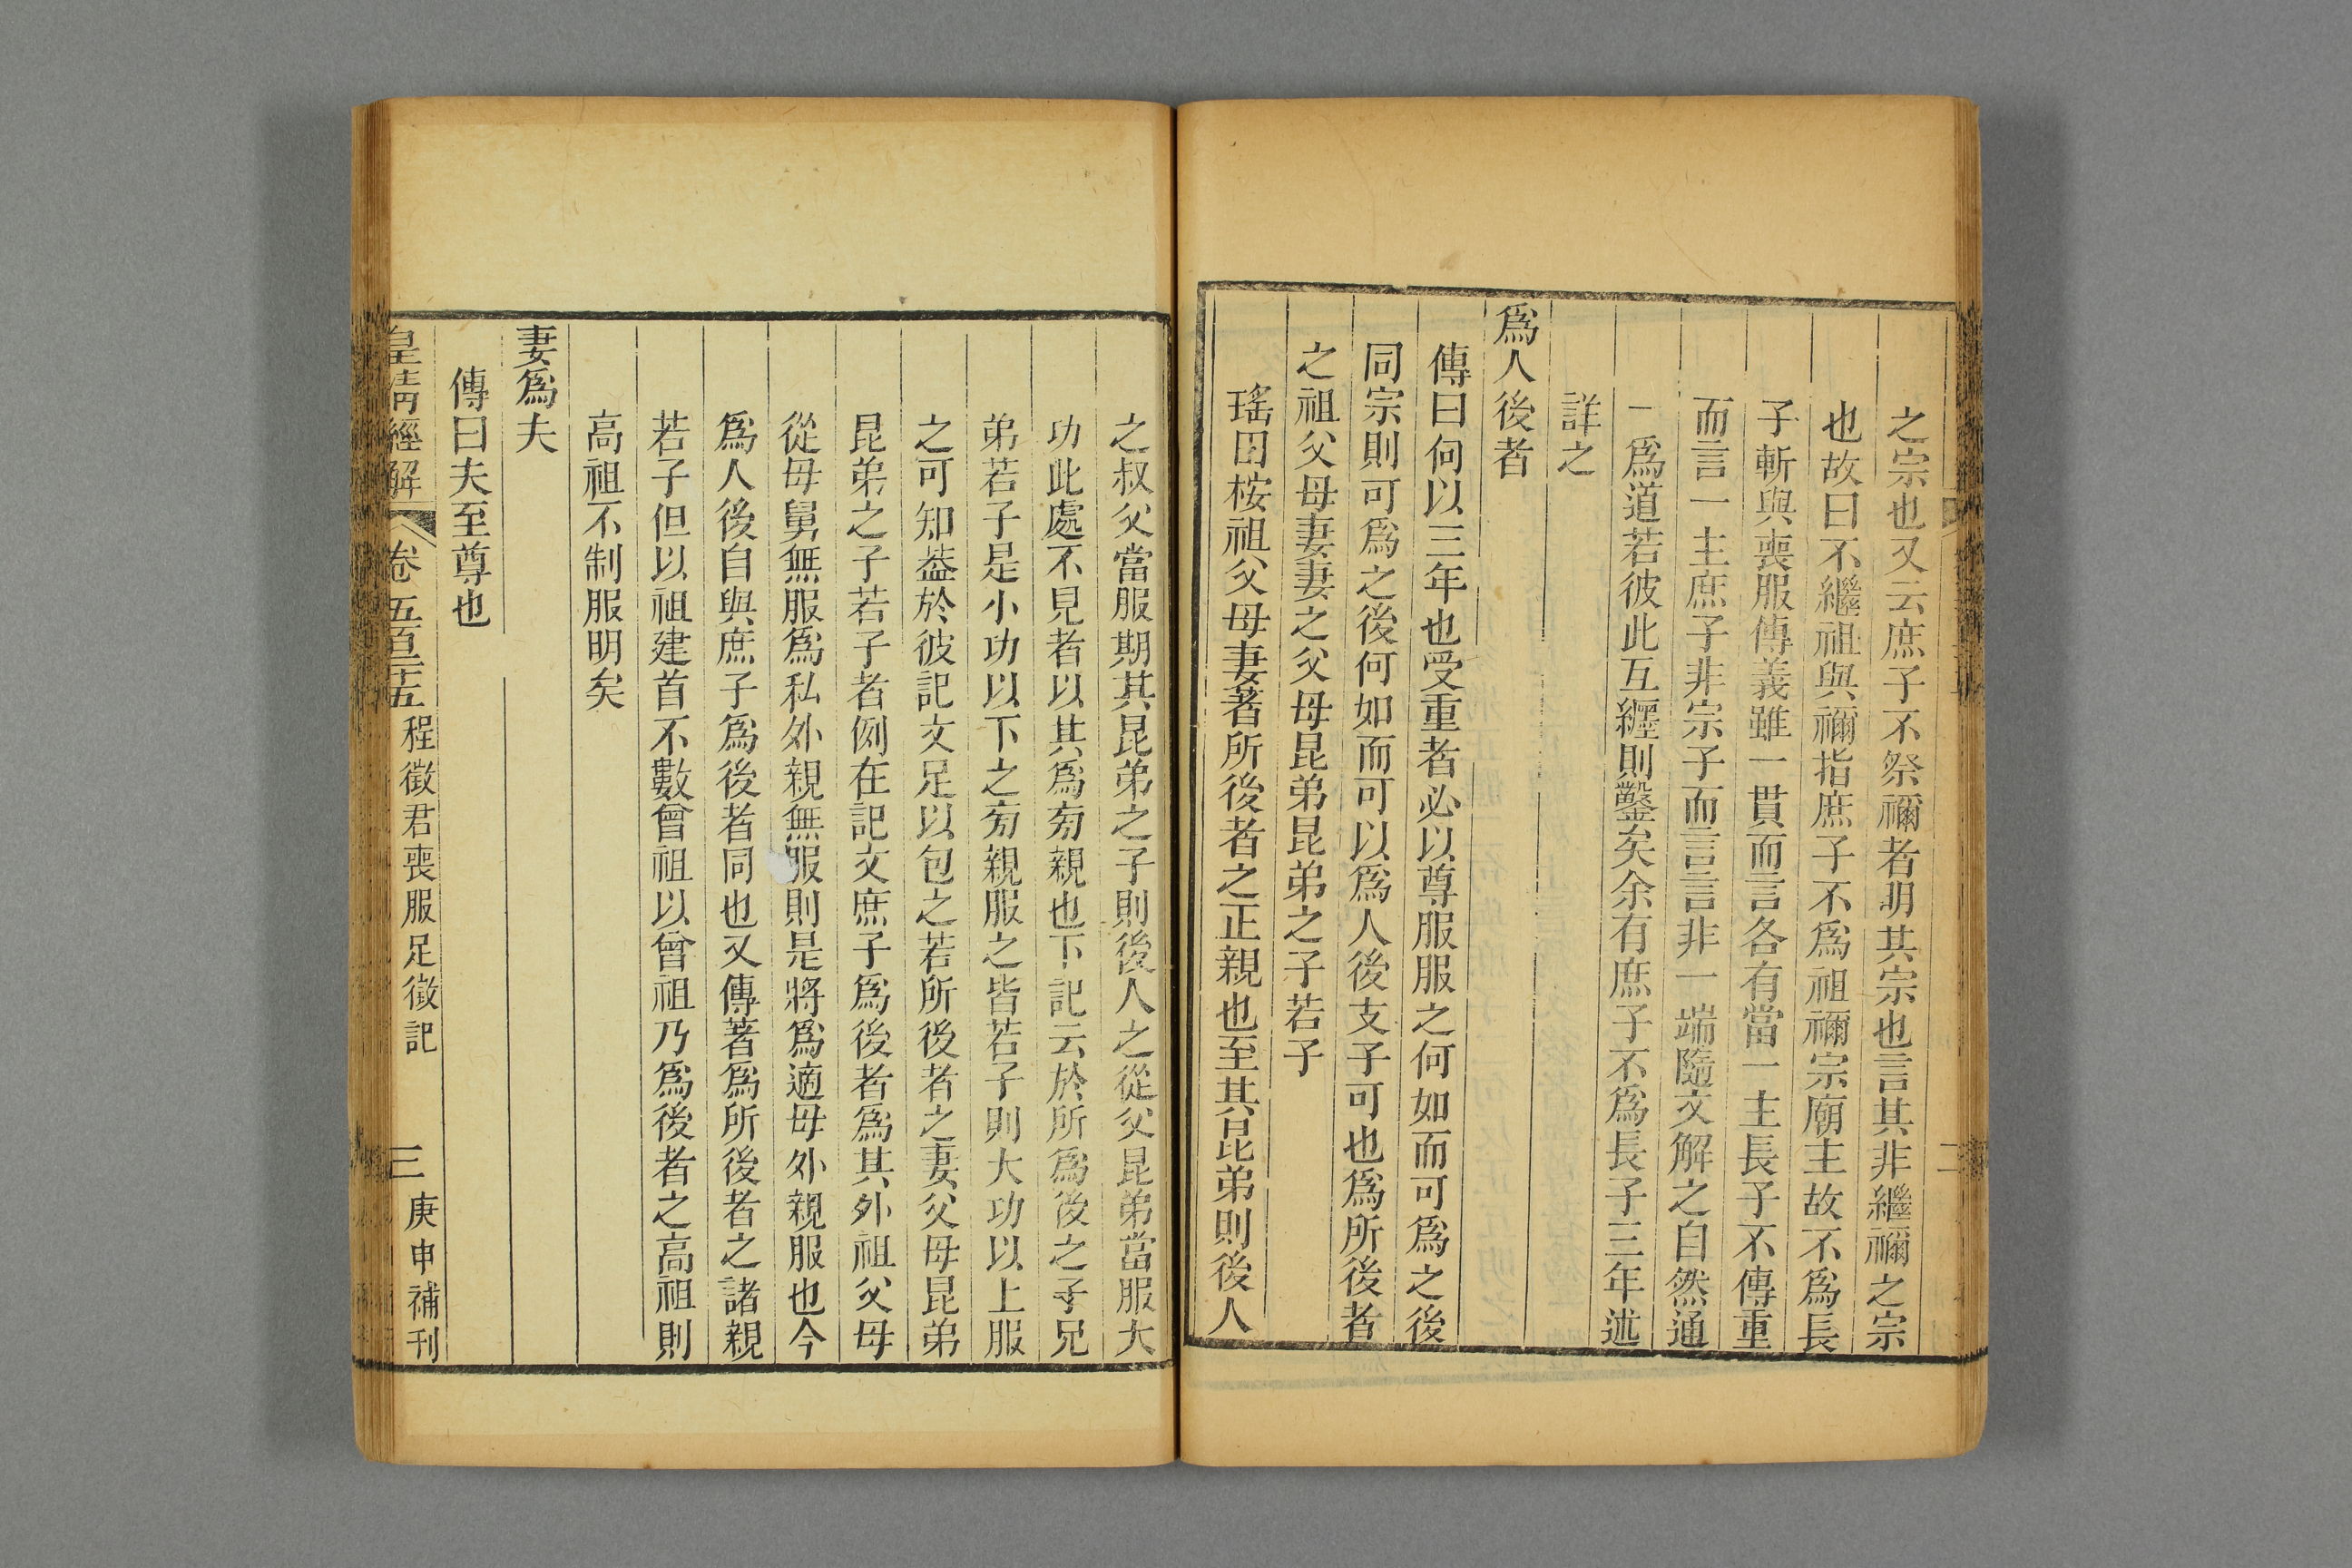 之宗也又云庶子不祭禰者明其宗也言其非繼禰之宗
也故曰不繼祖與禰指庶子不爲祖禰宗廟主故不爲長
子斬與喪服傳義雖一貫而言各有當一主長子不傳重
而言一主庶子非宗子而言言非一端隨文解之自然通
一爲道若彼此互纒則鑿矣余有庶子不爲長子三年述
詳之
爲人後者
傳曰何以三年也受重者必以尊服服之何如而可爲之後
同宗則可爲之後何如而可以爲人後支子可也爲所後者
之祖父母妻妻之父母昆弟昆弟之子若子
瑤田桉祖父母妻著所後者之正親也至其昆弟則後人
之叔父當服期其昆弟之子則後人之從父昆弟當服大
功此處不見者以其爲㫄親也下記云於所爲後之子兄
弟若子是小功以下之㫄親服之皆若子則大功以上服
之可知葢於彼記文足以包之若所後者之妻父母昆弟
昆弟之子若子者例在記文庶子爲後者爲其外祖父母
從母舅無服爲私外親無服則是將爲適母外親服也今
爲人後自與庶子爲後者同也又傳著爲所後者之諸親
若子但以祖建首不數曾祖以曾祖乃爲後者之高祖則
高祖不制服明矣
妻爲夫
傳曰夫至尊也
皇清經解 卷五百二十五 程徵君喪服足徵記 三 庚申補刊